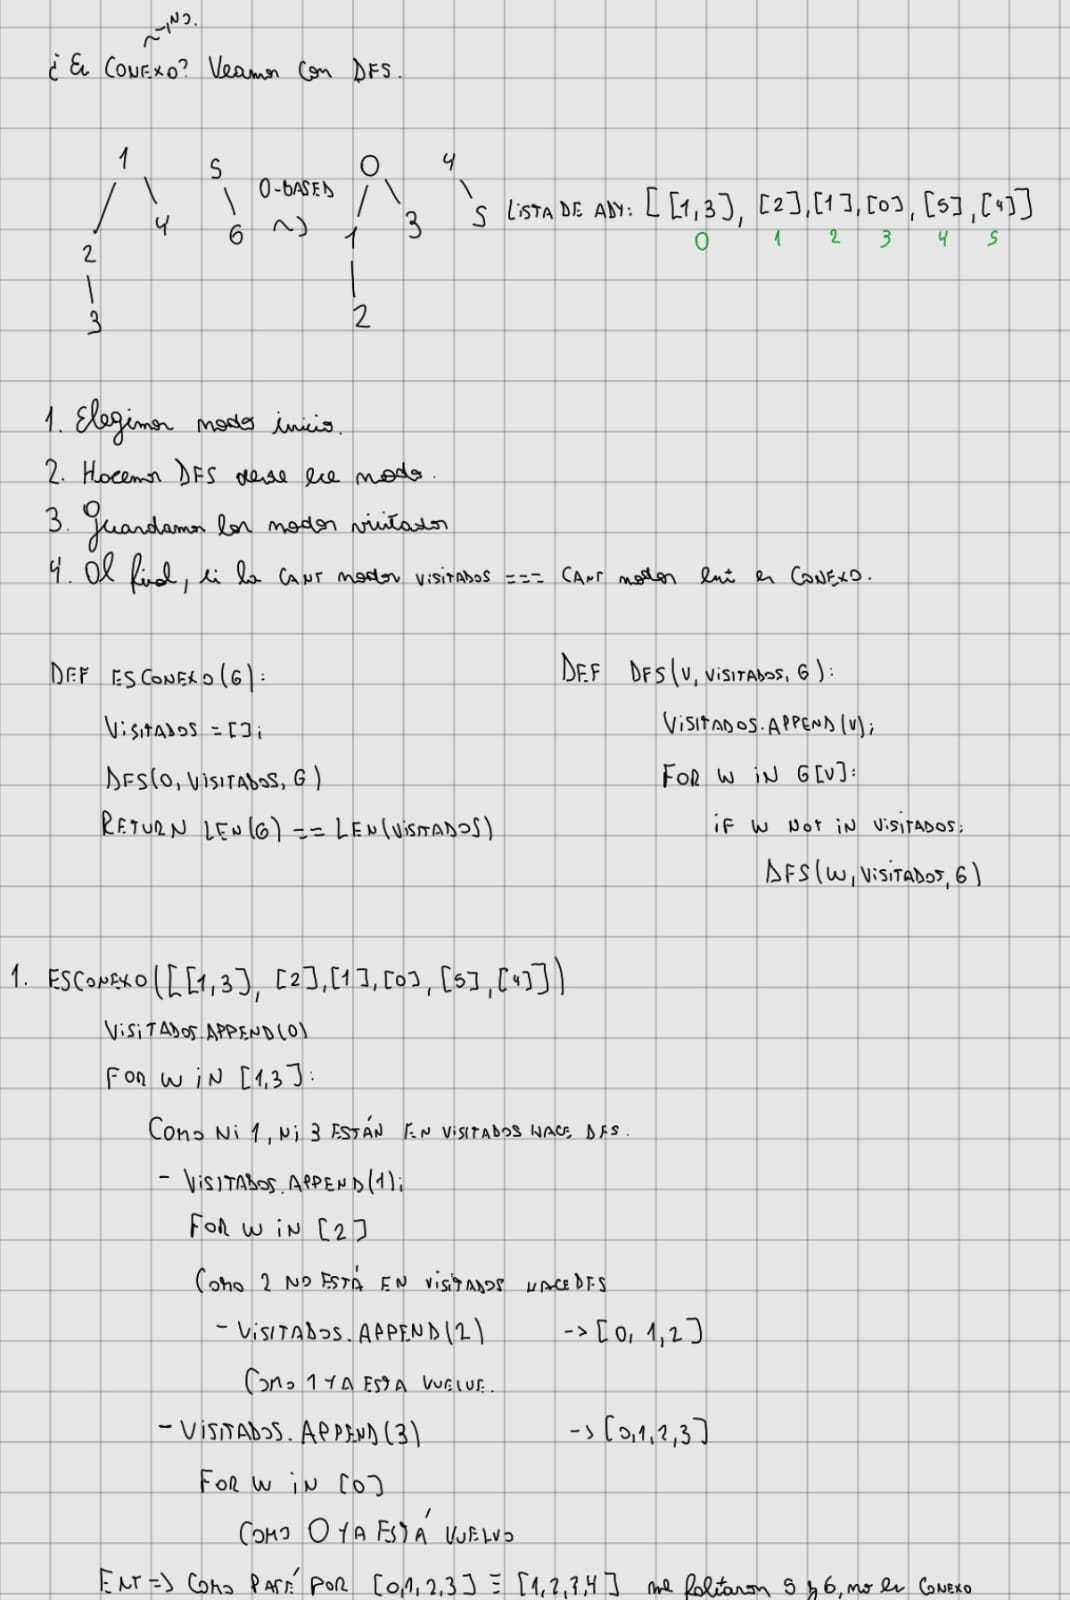 ~→NO.
¿Es CONEXO? Veamos con DFS.
1 5 0 4
0-BASED
4 6 ~) 1 3 5 LISTA DE ADY: [[1,3], [2],[1],[0],[5],[4]]
0 1 2 3 4 5
2
3 2
1. Elegimos nodo inicio.
2. Hacemos DFS desde ese nodo.
3. Guardamos los nodos visitados
4. Al final, si la CANT nodos VISITADOS === CANT nodos ent es CONEXO.
DEF ESCONEXO(G):
VISITADOS = [];
DFS(0, VISITADOS, G)
RETURN LEN(G) == LEN(VISITADOS)
DEF DFS(V, VISITADOS, G):
VISITADOS.APPEND(V);
FOR W IN G[V]:
IF W NOT IN VISITADOS:
DFS(W, VISITADOS, G)
1. ESCONEXO([[1,3], [2],[1],[0],[5],[4]])
VISITADOS.APPEND(0)
FOR W IN [1,3]:
COMO NI 1, NI 3 ESTÁN EN VISITADOS HACE DFS.
- VISITADOS.APPEND(1);
FOR W IN [2]
COMO 2 NO ESTÁ EN VISITADOS HACE DFS
- VISITADOS.APPEND(2) -> [0, 1, 2]
COMO 1 YA ESTA VUELVE.
- VISITADOS.APPEND(3) -> [0,1,2,3]
FOR W IN [0]
COMO 0 YA ESTÁ VUELVO
ENT => COMO PASÉ POR [0,1,2,3] ≡ [1,2,3,4] me faltaron 5 y 6, no es CONEXO